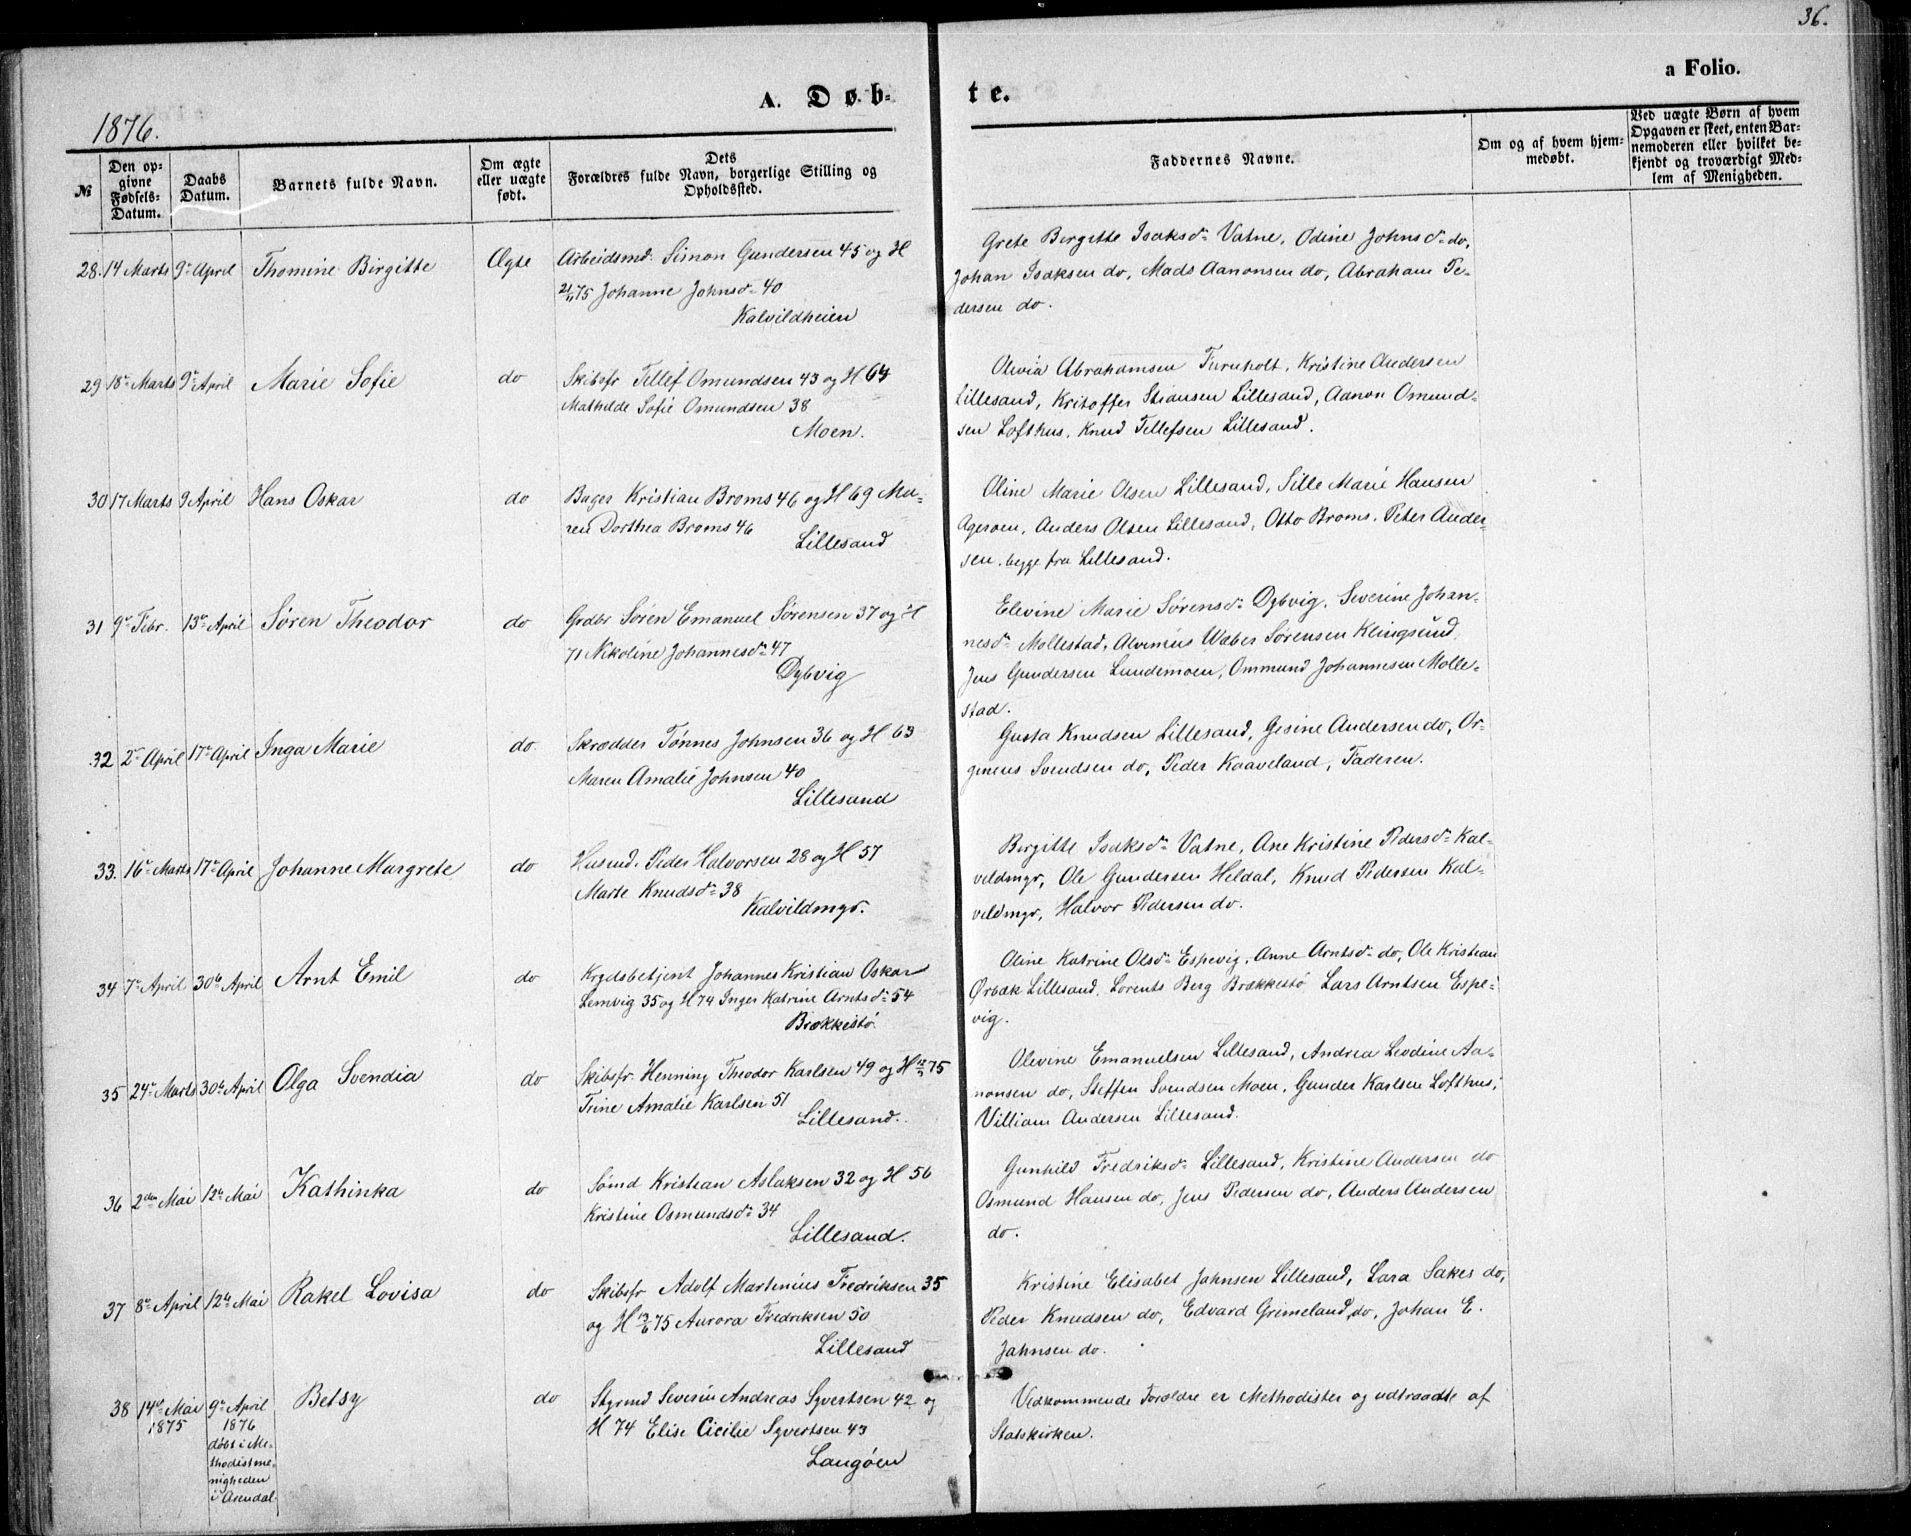 36.
a Folio.
A. Døb-
te.
1876.
№
Den op-
givne
Fødsels-
Datum.
Daabs
Datum.
Barnets fulde Navn.
Om ægte
eller uægte
født.
Dets
Forældres fulde Navn, borgerlige Stilling og
Opholdssted.
Faddernes Navne.
Om og af hvem hjem-
medøbt.
Ved uægte Børn af hvem
Opgaven er skeet, enten Bar-
nemoderen eller hvilket be-
kjendt og troværdigt Med-
lem af Menigheden.
28. 14 Marts 9de April Thomine Birgitte Ægte Arbeidsmd. Simon Gundersen 45 og H
21/11 75 Johanne Johnsdr 40
Kalvildheien
Grete Birgitte Isaksdr Vatne, Odine Johnsdr do,
Johan Isaksen do, Mads Aanonsen do, Abraham Pe-
dersen do.
29 18de Marts 9de April Marie Sofie do Skibsfr Tellef Omundsen 43 og H 64
Mathilde Sofie Omundsen 38
Moen.
Olivia Abrahamsen Furuholt, Kristine Andersen
Lillesand, Kritoffer Stiansen Lillesand, Aanon Omund-
sen Lofthus, Knud Tellefsen Lillesand.
30 17 Marts 9 April Hans Oskar do Bager Kristian Broms 46 og H 69 Ma-
ren Dorthea Broms 46
Lillesand
Oline Marie Olsen Lillesand, Sille Marie Hansen
Agerøen, Anders Olsen Lillesand, Otto Broms, Peter Ander-
sen, begge fra Lillesand.
31 9de Febr. 13de April Søren Theodor do Grdbr Søren Emanuel Sørensen 37 og H
71 Nikoline Johannesdr 47
Dybvig
Elevine Marie Sørensdr Dybvig, Severine Johan-
nesdr Mollestad, Alvinius Weber Sørensen Klingsund,
Jens Gundersen Lundemoen, Ommund Johannesen Molle-
stad.
32 2den April 17de April Inga Marie do. Skrædder Tønnes Johnsen 36 og H 63
Maren Amalie Johnsen 40
Lillesand
Gusta Knudsen Lillesand, Gesine Andersen do, Or-
ginius Svendsen do, Peder Kaaveland, Faderen.
33. 16de Marts 17de April Johanne Margrete do Husmd. Peder Halvorsen 28 og H 57
Marte Knudsdr 38
Kalvildmyr.
Birgitte Isaksdr Vatne, Ane Kristine Pedersdr Kal-
vildmyr, Ole Gundersen Heldal, Knud Pedersen Kal-
vildmyr, Halvor Pedersen do.
34 7de April 30te April Arnt Emil do Krydsbetjent Johannes Kristian Oskar
Lemvig 35 og H 74 Inger Katrine Arntsdr 54
Brækkestø
Oline Katrine Olsdr Espevig, Anne Arntsdr do, Ole Kristian
Ørbæk Lillesand, Lorents Berg Brækkestø Lars Arntsen Espe-
vig.
35 24de Marts 30te April Olga Svendia do Skibsfr. Henning Theodor Karlsen 49 og H 75
Trine Amalie Karlsen 51
Lillesand.
Olevine Emanuelsen Lillesand, Andrea Leodine Aa-
nonsen do, Steffen Svendsen Moen, Gunder Karlsen Lofthus,
Villiam Andersen Lillesand.
36 2den Mai 12te Mai Kathinka do Sømd Kristian Aslaksen 32 og H 56
Kristine Osmundsdr 34
Lillesand.
Gunhild Fredriksdr Lillesand, Kristine Andersen do
Osmund Hansen do, Jens Pedersen do, Anders Andersen
do.
37 8de April 12te Mai Rakel Lovisa do Skibsfr Adolf Martinius Fredriksen 35
og H 75 Aurora Fredriksen 50
Lillesand
Kristine Elisabet Jahnsen Lillesand, Lara Sakes do,
Peder Knudsen do, Edvard Grimeland do, Johan E.
Jahnsen do.
38 14de Mai 1875 9de April
1876
døbt i Me-
thodistme-
nigheden
i Arendal
Betsy do Styrmd Severin Andreas Syvertsen 42 og
H 74 Elise Cicilie Syvertsen 43
Langøen
Vedkommende Forældre er Methodister og udtraadte af
Statskirken.